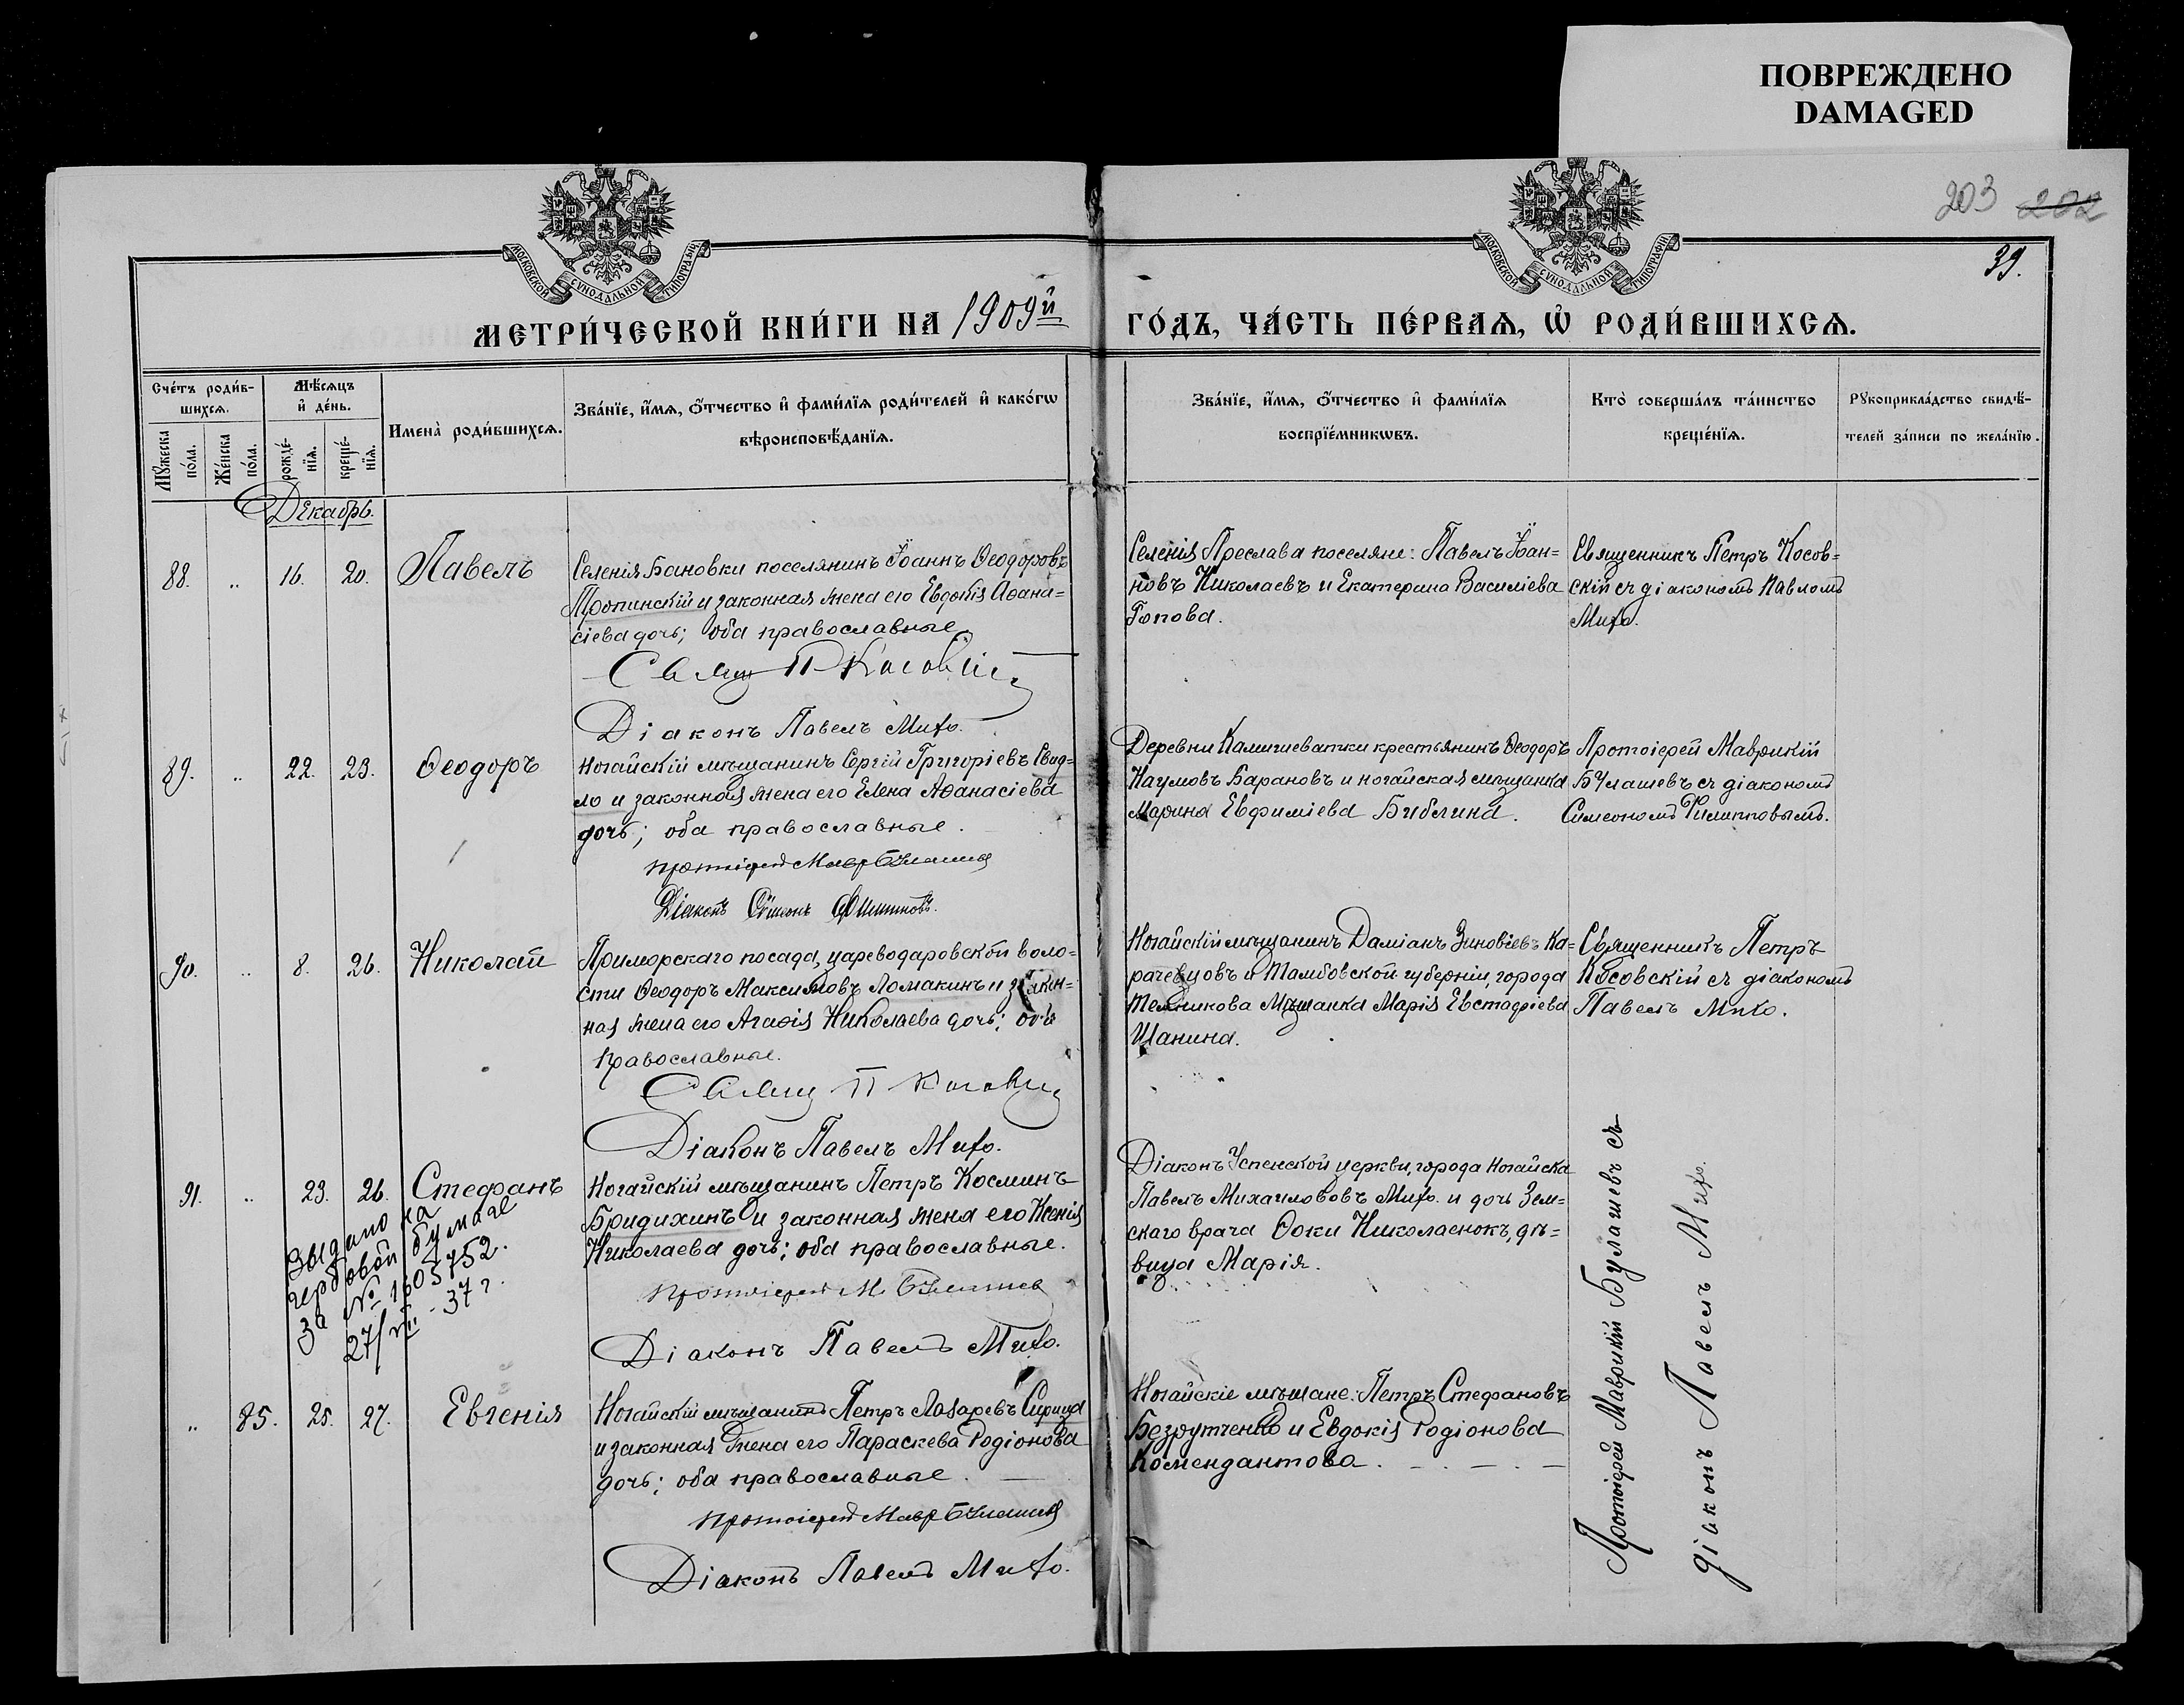 ПОВРЕЖДЕНО
DAMAGED
203 202
39.
МОСКОВСКОЙ СѴНОДАЛЬНОЙ ТИПОГРАФІИ
МОСКОВСКОЙ СѴНОДАЛЬНОЙ ТИПОГРАФІИ
МЕТРИ́ЧЕСКОЙ КНИ́ГИ НА 1909й
ГО́ДЪ, ЧА́СТЬ ПЕ́РВАѦ, Ѡ҆ РОДИ́ВШИХСѦ.
Сче́тъ роди́в-
шихсѧ.
Мѣ́сѧцъ
и҆ де́нь.
Имена̀ роди́вшихсѧ.
Зва́нїе, и҆́мѧ, ѻ҆́тчество и҆ фами́лїѧ роди́телей и҆ како́гѡ
вѣроисповѣ́данїѧ.
Мꙋ́жеска
по́ла.
Же́нска
по́ла.
рожде́-
нїѧ.
креще́-
нїѧ.
Зва́нїе, и҆́мѧ, ѻ҆́тчество и҆ фами́лїѧ
воспрїе́мникѡвъ.
Кто̀ соверша́лъ та́инство
креще́нїѧ.
Рꙋкоприкла́дство свидѣ́-
телей за́писи по жела́нїю.
Декабрь.
88. „ 16. 20. Павелъ
Селенія Бановки поселянинъ Іоаннъ Ѳеодоровъ
Тропинскій и законная жена его Евдокія Аѳана=
сіева дочь; оба православные.
Свящ П Косовскій
Діаконъ Павелъ Михо.
Селенія Преслава поселяне: Павелъ Іоан=
новъ Николаевъ и Екатерина Василіева
Попова.
Священникъ Петръ Косов=
скій съ діакономъ Павломъ
Михо.
89. „ 22. 23. Ѳеодоръ
Ногайскій мѣщанинъ Сергій Григоріевъ Свид=
ло и законная жена его Елена Аѳанасіева
дочь; оба православные.
протоіерей Мавр Булашевъ
Діаконъ Сѵмеонъ Филипповъ.
Деревни Камишеватки крестьянинъ Ѳеодоръ
Наумовъ Барановъ и ногайская мѣщанка
Марина Евфиміева Библина.
Протоіерей Маврикій
Булашевъ съ діакономъ
Симеономъ Филипповымъ.
90. „ 8. 26. Николай
Приморскаго посада, цареводаровской воло=
сти Ѳеодоръ Максимовъ Ломакинъ и закон=
ная жена его Агаѳія Николаева дочь; оба
православные.
Свящ П Косовскій
Діаконъ Павелъ Михо.
Ногайскій мѣщанинъ Даміанъ Зиновіевъ Ка=
рачевцовъ и Тамбовской губерніи, города
Темникова мѣщанка Марія Евстафіева
Шанина.
Священникъ Петръ
Косовскій съ діакономъ
Павелъ Михо.
91. „ 23. 26. Стефанъ
Выдано на
гербовой бумаге
за № 1605752.
27/VII - 37 г.
Ногайскій мѣщанинъ Петръ Косминъ
Бридихинъ и законная жена его Ксенія
Николаева дочь; оба православные.
протоіерей М. Булашев
Діаконъ Павелъ Михо.
Діаконъ Успенской церкви, города Ногайска
Павелъ Михаилововъ Михо. и дочь Зем=
скаго врача Ѳоки Николаенокъ, дѣ=
вица Марія.
Протоіерей Маврикій Булашевъ съ
діаконъ Павелъ Михо.
„ 85. 25. 27. Евгенія
Ногайскій мѣщанинъ Петръ Лазаревъ Сирица
и законная жена его Параскева Родіонова
дочь; оба православные.
протоіерей Мавр Булашевъ
Діаконъ Павелъ Михо.
Ногайскіе мѣщане: Петръ Стефановъ
Безрутченко и Евдокія Родіонова
Комендантова.